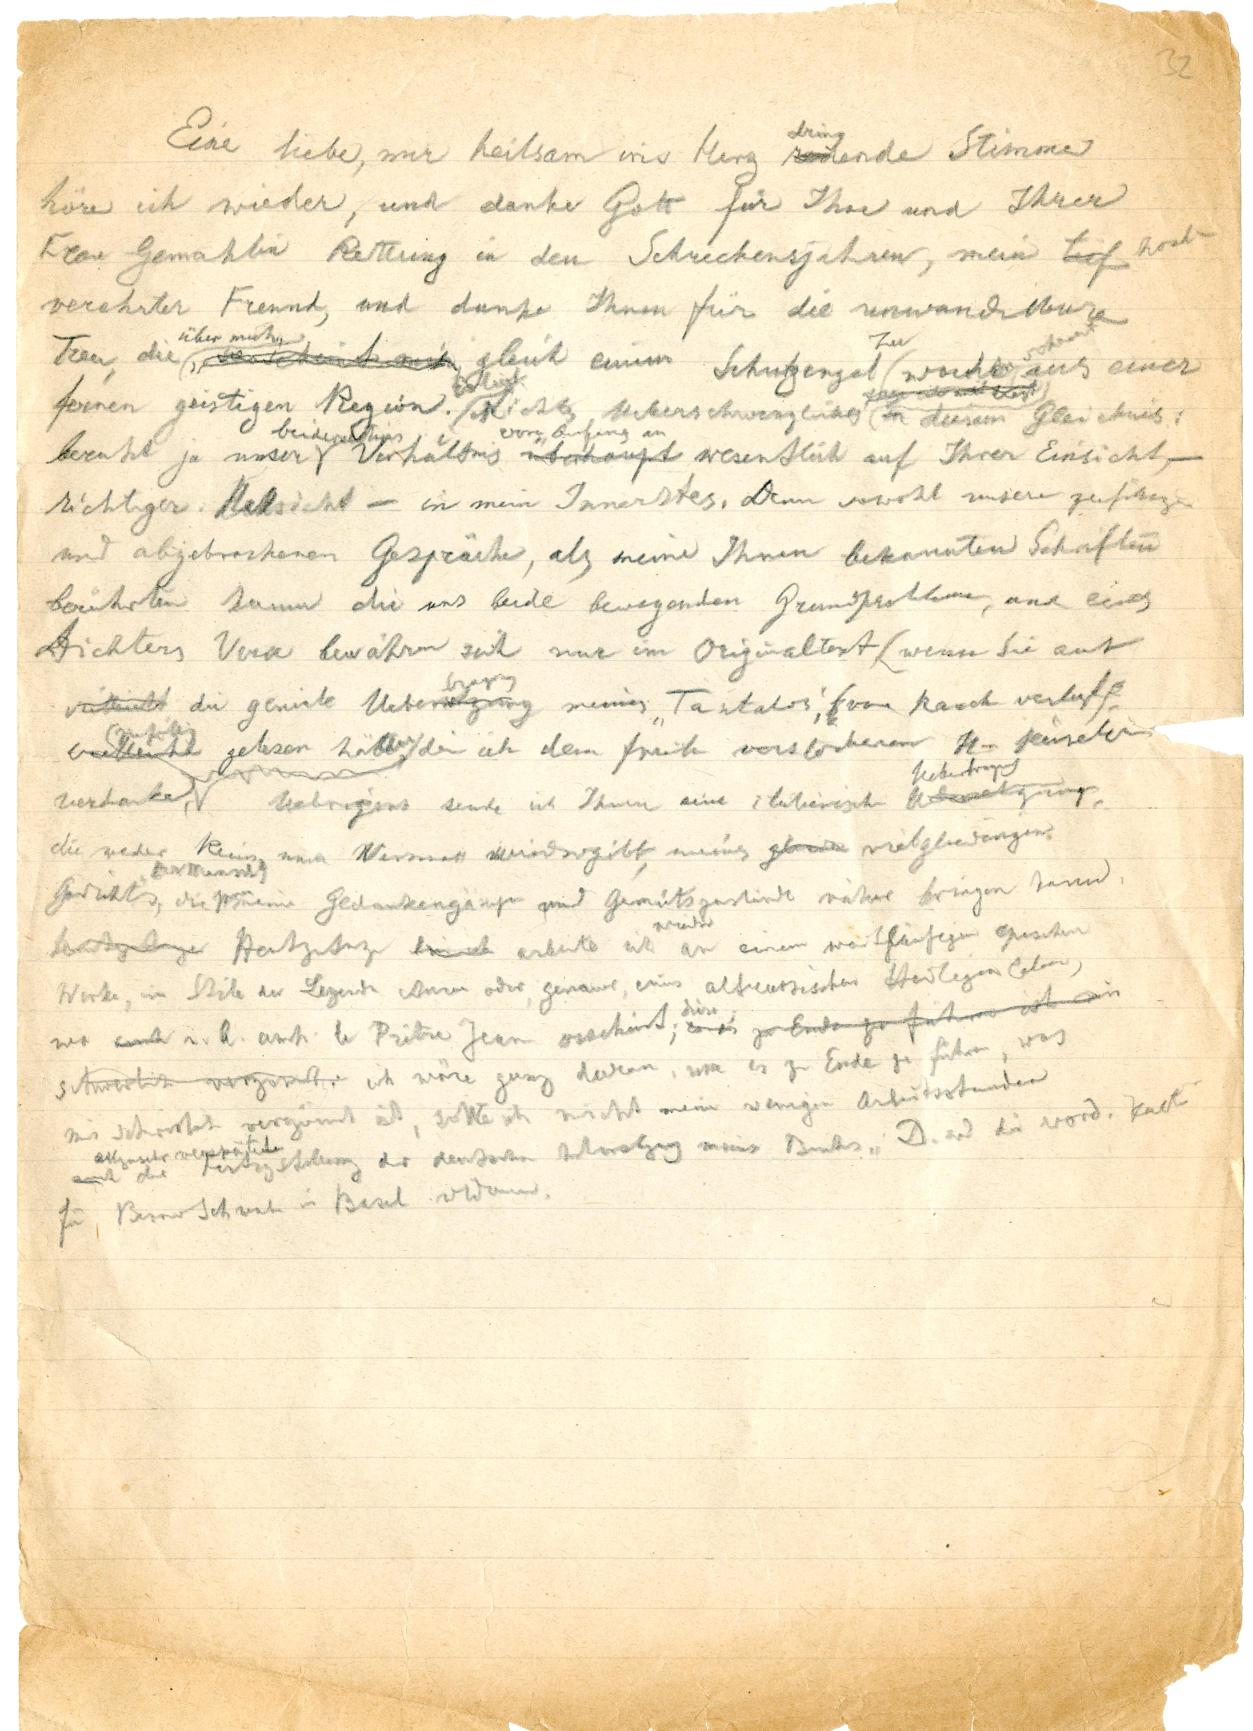 32
Eine liebe, mir heilsam ins Herz dringende Stimme
höre ich wieder, und danke Gott für Ihre und Ihrer
Frau Gemahlin Rettung in den Schreckensjahren, mein tief hoch-
verehrter Freund, und danke Ihnen für die unwandelbare
Treu, die über mich, gleich einem Schutzengel aus einer
fernen geistigen Region. Nichts Ueberschwengliches in diesem Gleichnis:
beruht ja unser beiderseitiges Verhältnis von Anfang an überhaupt wesentlich auf Ihrer Einsicht, —
richtiger: Hellsicht — in mein Innerstes. Denn sowohl unsere
und abgebrochenen Gespräche, als meine Ihnen bekannten Schriften
berührten kaum die uns beide bewegenden Grundprobleme, und eines
Dichters Verse bewähren sich nur im Originaltext (wenn Sie auch
vielleicht die geniale Uebertragung meines „Tantalos", (vom Rauch verlegt,
vielleicht zufällig gelesen hätten, die ich dem früh verstorbenen H. Heiseler
verdanke). Uebrigens sende ich Ihnen eine italienische Uebersetzung Uebertragung,
die weder Reim, noch Versmass wiedergibt, meines vielgliedrigen
Gedichts, die meine Gedankengänge und Gemütszustände näher bringen kann.
Heutzutage arbeite ich wieder an einem weitläufigen epischen
Werke, im Stile der Legende oder, genauer, eines altrussischen Heiligenleben,
wo auch u. a. auch le Prêtre Jean erscheint; es zu Ende zu führen ist mir
schwerlich vergönnt. ich wäre ganz daran, um es zu Ende zu führen, was
mir schwerlich vergönnt ist, sollte ich nicht meine wenigen Arbeitsstunden
auch die Fertigstellung der deutschen Uebersetzung meines Buches „D. und die vord. Kulte
für Benno Schwabe in Basel widmen.